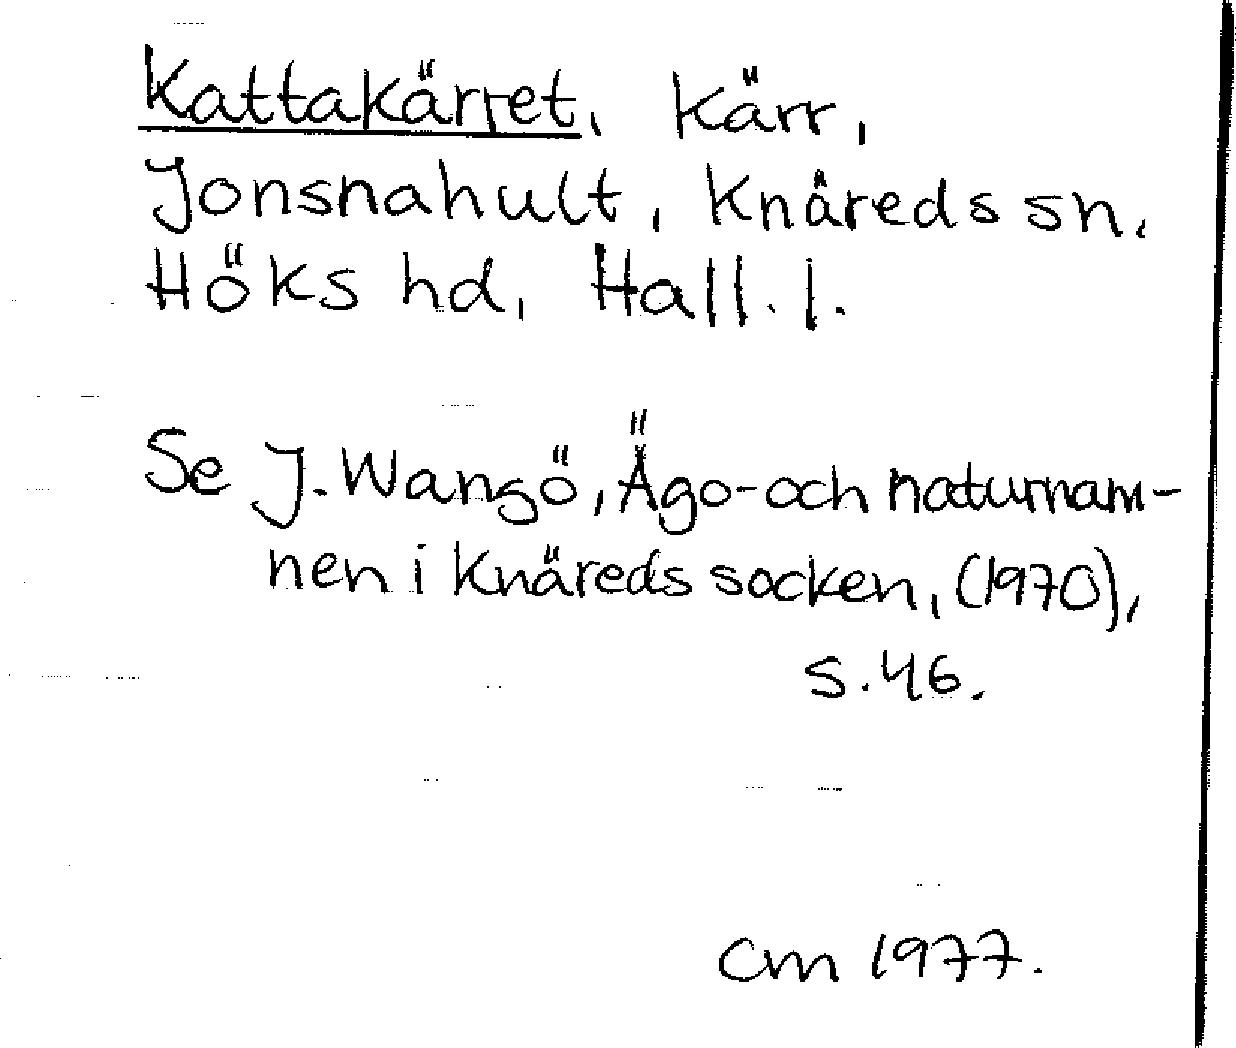 Kattakärret, Kärr,
Jonsnahult, Knäreds sn.
Höks hd, Hall. l.
Se J. Wangö, Ägo- och naturnam-
nen i Knäreds socken, (1970),
s. 46.
Cm 1977.